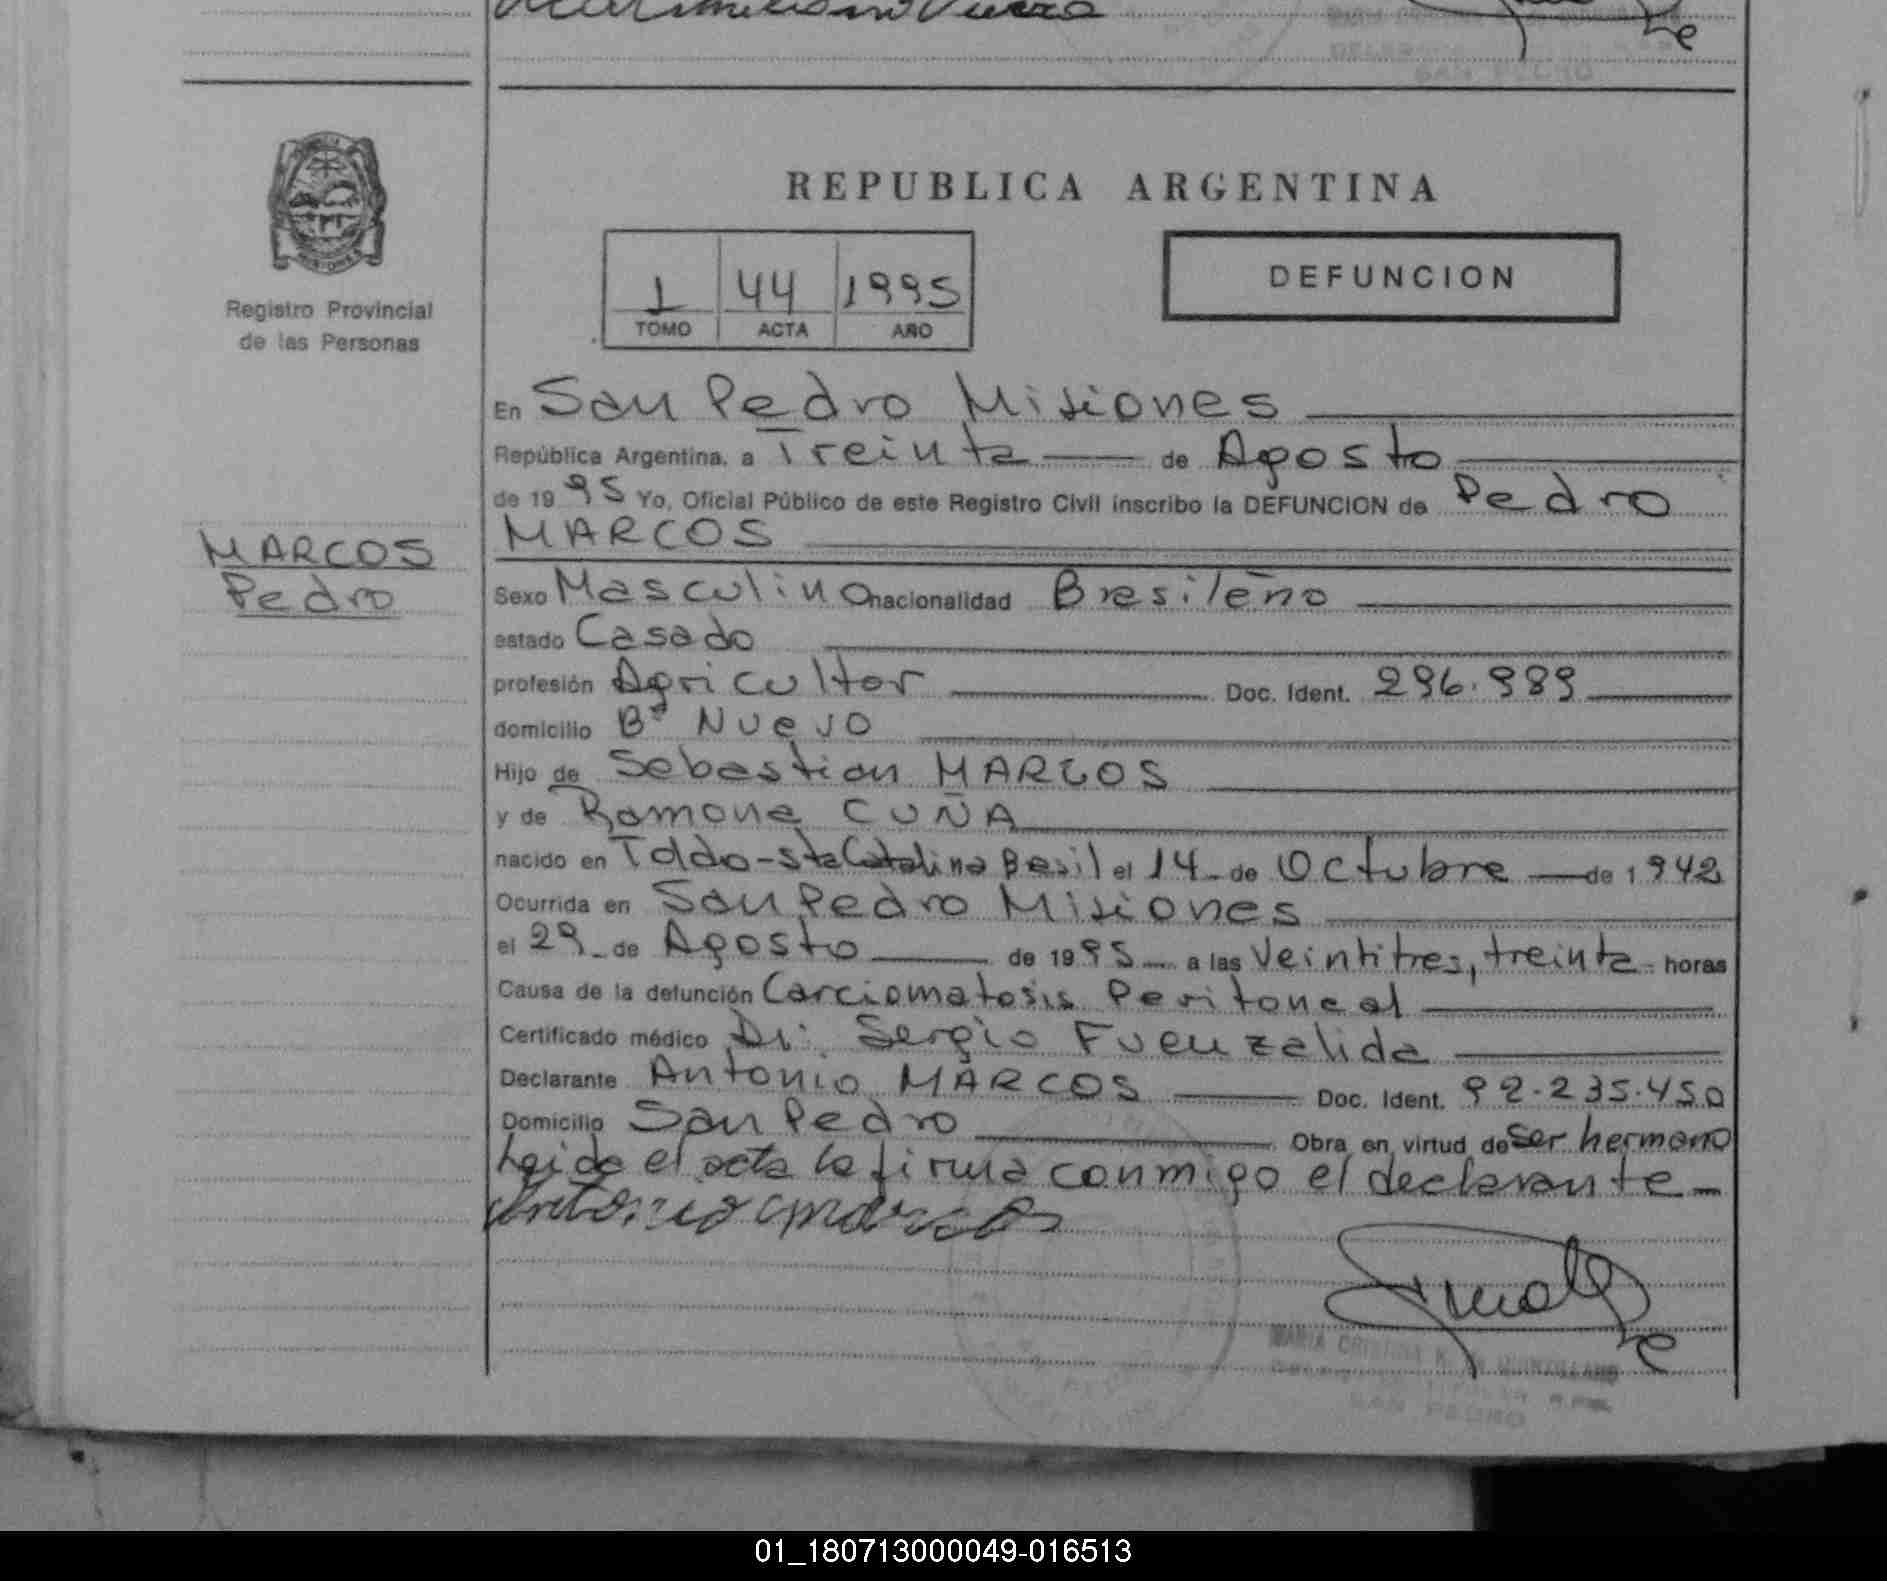 SAN PEDRO
REPUBLICA ARGENTINA
MISIONES
Registro Provincial
de las Personas
1 44 1995
TOMO ACTA AÑO
DEFUNCION
En San Pedro Misiones
República Argentina, a Treinta de Agosto
de 1995 Yo, Oficial Público de este Registro Civil inscribo la DEFUNCION de Pedro
MARCOS
MARCOS
Pedro
Sexo Masculino nacionalidad Brasileño
estado Casado
profesión Agricultor Doc. Ident. 296.989
domicilio Bº Nuevo
Hijo de Sebastian MARCOS
y de Ramona CUÑA
nacido en Toldo-Sta Catalina Basil el 14 de Octubre de 1942
Ocurrida en San Pedro Misiones
el 29 de Agosto de 1995 a las Veintitres, treinta horas
Causa de la defunción Carciomatosis Peritoneal
Certificado médico Dr: Sergio Fuenzalida
Declarante Antonio MARCOS Doc. Ident. 92.235.450
Domicilio San Pedro Obra en virtud de Ser hermano
Leida el acta la firma conmigo el declarante
Antonio marcos
MARIA CRISTINA
SAN PEDRO
01_180713000049-016513